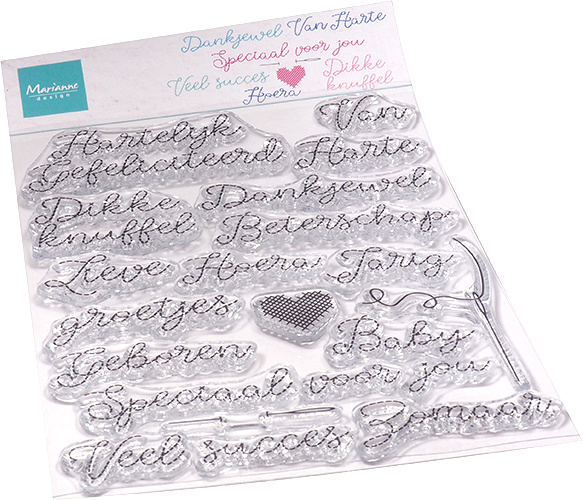 Marianne
design
Dankjewel Van Harte
Speciaal voor jou
Veel succes
Hoera
Dikke
knuffel
Hartelijk
Gefeliciteerd
Van
Harte
Dikke
knuffel
Dankjewel
Beterschap
Lieve
Hoera
Jarig
groetjes
Baby
Geboren
Speciaal voor jou
Zomaar
Veel succes